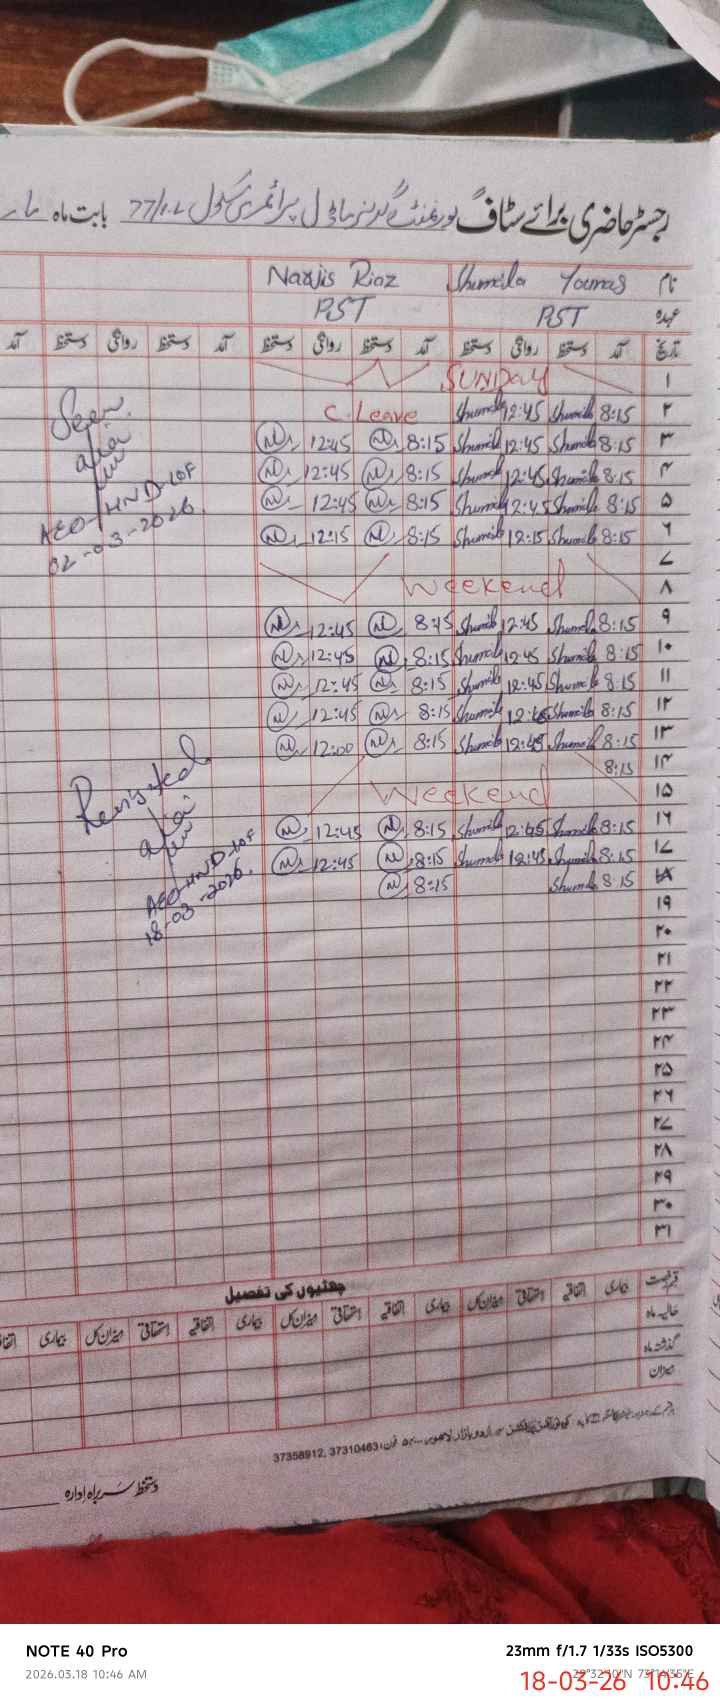 رجسٹر حاضری برائے سٹاف گورنمنٹ گرلز ماڈل پرائمری سکول 77/12.L بابت ماہ
نام Shumila Younas Narjis Riaz
عہدہ PST PST
تاریخ آمد دستخط روانگی دستخط آمد دستخط روانگی دستخط آمد دستخط روانگی دستخط آمد
۱ SUNDAY
۲ 8:15 Shumila 12:45 Shumila C. Leave
۳ 8:15 Shumila 12:45 Shumila 8:15 12:45
۴ 8:15 Shumila 12:45 Shumila 8:15 12:45
۵ 8:15 Shumila 12:45 Shumila 8:15 12:45
۶ 8:15 Shumila 12:15 Shumila 8:15 12:15
۷
۸ Weekend
۹ 8:15 Shumila 12:45 Shumila 8:15 12:45
۱۰ 8:15 Shumila 12:45 Shumila 8:15 12:45
۱۱ 8:15 Shumila 12:45 Shumila 8:15 12:45
۱۲ 8:15 Shumila 12:45 Shumila 8:15 12:45
۱۳ 8:15 Shumila 12:45 Shumila 8:15 12:00
۱۴ 8:15
۱۵ Weekend
۱۶ 8:15 Shumila 12:45 Shumila 8:15 12:45
۱۷ 8:15 Shumila 12:45 Shumila 8:15 12:45
۱۸ 8:15 Shumila 8:15
۱۹
۲۰
۲۱
۲۲
۲۳
۲۴
۲۵
۲۶
۲۷
۲۸
۲۹
۳۰
۳۱
Seen
AEO-HND-10F
02-03-2026
Revisited
AEO-HND-10F
18-03-2026.
چھٹیوں کی تفصیل
قسم رخصت بیماری اتفاقیہ استحقاقی میزان کل بیماری اتفاقیہ استحقاقی میزان کل بیماری اتفاقیہ استحقاقی میزان کل بیماری
حالیہ ماہ
گذشتہ ماہ
میزان
37358912, 37310463
دستخط سربراہ ادارہ
NOTE 40 Pro
2026.03.18 10:46 AM
23mm f/1.7 1/33s ISO5300
18-03-26 10:46